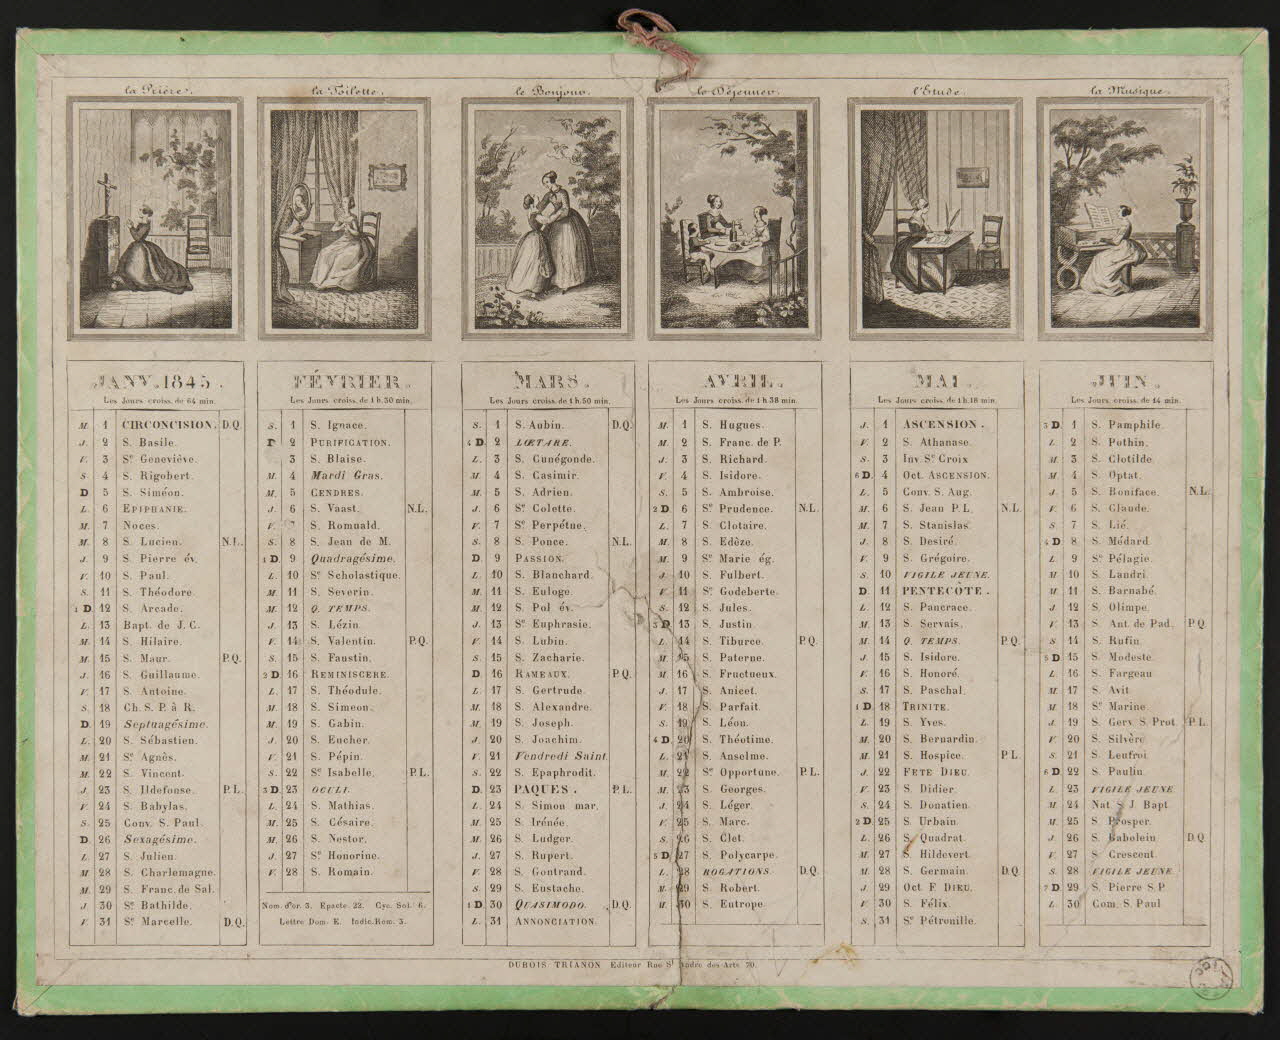 la Prière.
la Toilette.
le Bonjour.
le Déjeuner.
l'Etude.
la Musique.
JANV. 1845.
Les Jours croiss. de 64 min.
M. 1 CIRCONCISION. D.Q.
J. 2 S. Basile.
V. 3 Se Geneviève.
S. 4 S. Rigobert.
D 5 S. Siméon.
L. 6 EPIPHANIE.
M. 7 Noces.
M. 8 S. Lucien. N.L.
J. 9 S. Pierre év.
V. 10 S. Paul.
S. 11 S. Théodore.
1 D. 12 S. Arcade.
L. 13 Bapt. de J. C.
M. 14 S. Hilaire.
M. 15 S. Maur. P.Q.
J. 16 S. Guillaume.
V. 17 S. Antoine.
S. 18 Ch. S. P. à R.
D. 19 Septuagésime.
L. 20 S. Sébastien.
M. 21 Se Agnès.
M. 22 S. Vincent.
J. 23 S. Ildefonse. P.L.
V. 24 S. Babylas.
S. 25 Conv. S. Paul.
D. 26 Sexagésime.
L. 27 S. Julien.
M. 28 S. Charlemagne.
M. 29 S. Franc. de Sal.
J. 30 Se Bathilde.
V. 31 Se Marcelle. D.Q.
FÉVRIER.
Les Jours croiss. de 1 h. 30 min.
S. 1 S. Ignace.
D 2 PURIFICATION.
3 S. Blaise.
M. 4 Mardi Gras.
M. 5 CENDRES.
J. 6 S. Vaast. N.L.
V. 7 S. Romuald.
S. 8 S. Jean de M.
1 D. 9 Quadragésime.
L. 10 Se Scholastique.
M. 11 S. Severin.
M. 12 Q. TEMPS.
J. 13 S. Lézin.
V. 14 S. Valentin. P.Q.
S. 15 S. Faustin.
2 D. 16 REMINISCERE.
L. 17 S. Théodule.
M. 18 S. Simeon.
M. 19 S. Gabin.
J. 20 S. Eucher.
V. 21 S. Pépin.
S. 22 Se Isabelle. P.L.
3 D. 23 OCULI.
L. 24 S. Mathias.
M. 25 S. Césaire.
M. 26 S. Nestor.
J. 27 Se Honorine.
V. 28 S. Romain.
Nom. d'or. 3. Epacte. 22. Cyc. Sol. 6.
Lettre Dom. E. Indic. Rom. 3.
MARS.
Les Jours croiss. de 1 h. 50 min.
S. 1 S. Aubin. D.Q.
4 D. 2 LŒTARE.
L. 3 S. Cunégonde.
M. 4 S. Casimir.
M. 5 S. Adrien.
J. 6 Se Colette.
V. 7 Se Perpétue.
S. 8 S. Ponce. N.L.
D. 9 PASSION.
L. 10 S. Blanchard.
M. 11 S. Euloge.
M. 12 S. Pol év.
J. 13 Se Euphrasie.
V. 14 S. Lubin.
S. 15 S. Zacharie.
D. 16 RAMEAUX. P.Q.
L. 17 S. Gertrude.
M. 18 S. Alexandre.
M. 19 S. Joseph.
J. 20 S. Joachim.
V. 21 Vendredi Saint
S. 22 S. Epaphrodit.
D. 23 PAQUES. P.L.
L. 24 S. Simon mar.
M. 25 S. Irénée.
M. 26 S. Ludger.
J. 27 S. Rupert.
V. 28 S. Gontrand.
S. 29 S. Eustache.
1 D. 30 QUASIMODO. D.Q.
L. 31 ANNONCIATION.
AVRIL.
Les Jours croiss. de 1 h 38 min.
M. 1 S. Hugues.
M. 2 S. Franc. de P.
J. 3 S. Richard.
V. 4 S. Isidore.
S. 5 S. Ambroise.
2 D. 6 Se Prudence. N.L.
L. 7 S. Clotaire.
M. 8 S. Edèze.
M. 9 Se Marie ég.
J. 10 S. Fulbert.
V. 11 Se Godeberte.
S. 12 S. Jules.
3 D. 13 S. Justin.
L. 14 S. Tiburce. P.Q.
M. 15 S. Paterne.
M. 16 S. Fructueux.
J. 17 S. Anicet.
V. 18 S. Parfait.
S. 19 S. Léon.
4 D. 20 S. Théotime.
L. 21 S. Anselme.
M. 22 Se Opportune. P.L.
M. 23 S. Georges.
J. 24 S. Léger.
V. 25 S. Marc.
S. 26 S. Clet.
5 D. 27 S. Polycarpe.
L. 28 ROGATIONS. D.Q.
M. 29 S. Robert.
M. 30 S. Eutrope.
MAI.
Les Jours croiss. de 1 h. 18 min.
J. 1 ASCENSION.
V. 2 S. Athanase.
S. 3 Inv. Se Croix
6 D. 4 Oct. ASCENSION.
L. 5 Conv. S. Aug.
M. 6 S. Jean P. L. N.L.
M. 7 S. Stanislas.
J. 8 S. Desiré.
V. 9 S. Grégoire.
S. 10 VIGILE JEUNE.
D. 11 PENTECÔTE.
L. 12 S. Pancrace.
M. 13 S. Servais.
M. 14 Q. TEMPS. P.Q.
J. 15 S. Isidore.
V. 16 S. Honoré.
S. 17 S. Paschal.
1 D. 18 TRINITE.
L. 19 S. Yves.
M. 20 S. Bernardin.
M. 21 S. Hospice. P L.
J. 22 FETE DIEU.
V. 23 S. Didier.
S. 24 S. Donatien.
2 D. 25 S. Urbain.
L. 26 S. Quadrat.
M. 27 S. Hildevert.
M. 28 S. Germain. D.Q
J. 29 Oct. F DIEU.
V. 30 S. Félix.
S. 31 Se Pétronille.
JUIN.
Les Jours croiss. de 14 min.
3 D. 1 S. Pamphile.
L. 2 S. Pothin.
M. 3 S. Clotilde.
M. 4 S. Optat.
J. 5 S. Boniface. N.L.
V. 6 S. Claude.
S. 7 S. Lié.
4 D. 8 S. Médard.
L. 9 Se Pélagie.
M. 10 S. Landri.
M. 11 S. Barnabé.
J. 12 S. Olimpe.
V. 13 S. Ant. de Pad. P.Q
S. 14 S. Rufin.
5 D. 15 S. Modeste.
L. 16 S. Fargeau
M. 17 S. Avit
M. 18 Se Marine.
J. 19 S. Gerv. S. Prot. P.L.
V. 20 S. Silvère
S. 21 S. Leufroi.
6 D. 22 S. Paulin.
L. 23 VIGILE JEUNE
M. 24 Nat. S. J. Bapt.
M. 25 S. Prosper.
J. 26 S. Babolein D.Q
V. 27 S. Crescent.
S. 28 VIGILE JEUNE
7 D. 29 S. Pierre S. P.
L. 30 Com. S. Paul
DUBOIS TRIANON Editeur Rue St Andre des Arts 70.